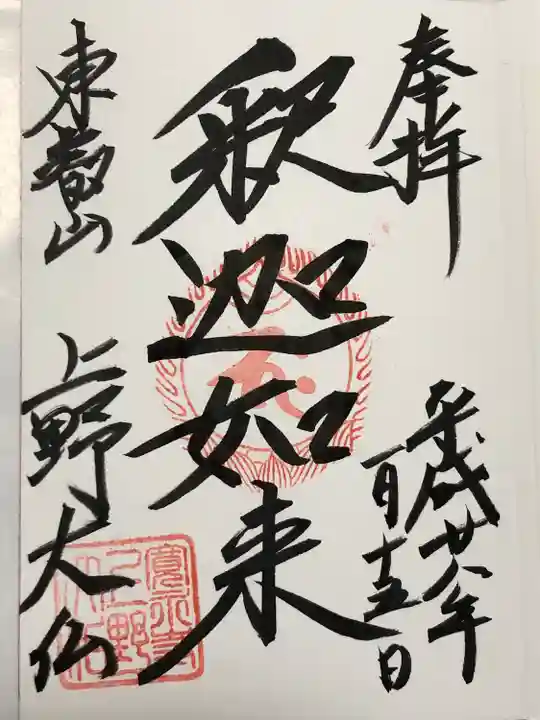 奉拝
平成廿八年
一月十五日
釈迦如来
東叡山
上野大仏
寛永寺
上野
大佛